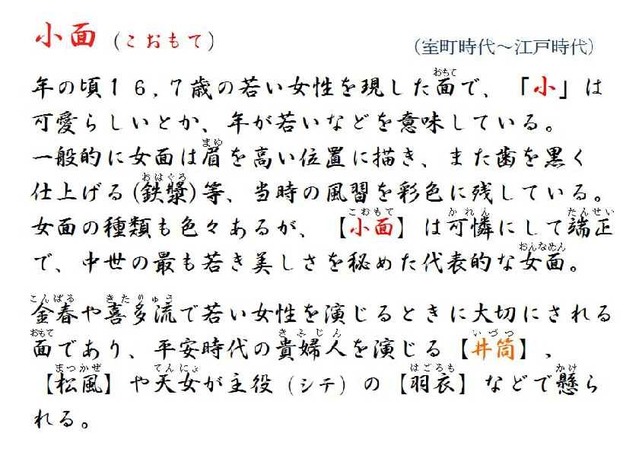 小面（こおもて）　（室町時代～江戸時代）
年の頃１６,７歳の若い女性を現した面で、「小」は
可愛らしいとか、年が若いなどを意味している。
一般的に女面は眉を高い位置に描き、また歯を黒く
仕上げる(鉄漿)等、当時の風習を彩色に残している。
女面の種類も色々あるが、【小面】は可憐にして端正
で、中世の最も若き美しさを秘めた代表的な女面。
金春や喜多流で若い女性を演じるときに大切にされる
面であり、平安時代の貴婦人を演じる【井筒】,
【松風】や天女が主役（シテ）の【羽衣】などで懸ら
れる。